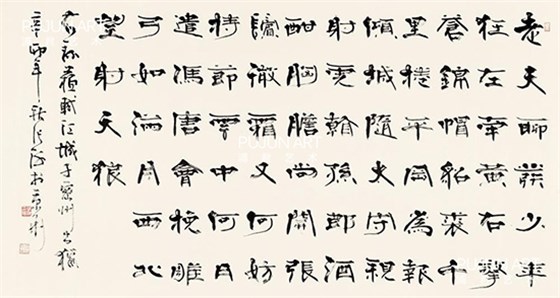 老夫聊發少年
狂左牽黃右擎
蒼錦帽貂裘千
里捲平岡為報
傾城隨太守親
射虎看孫郎酒
酣胸膽尚開張
鬢微霜又何妨
持節雲中何日
遣馮唐會挽雕
弓如滿月西北
望射天狼
右錄蘇軾江城子密州出獵
辛卯年秋於京
POJUN ART
POJUN ART
POJUN ART